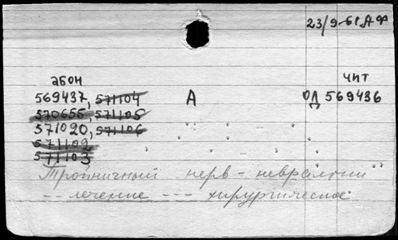 23/9-61 А Ф
абон чит
569437, 571104 А ОД 569436
570655, 571105
571020, 571106
571102
571103
Тройничный нерв - невралгии
-- лечение --- хирургическое